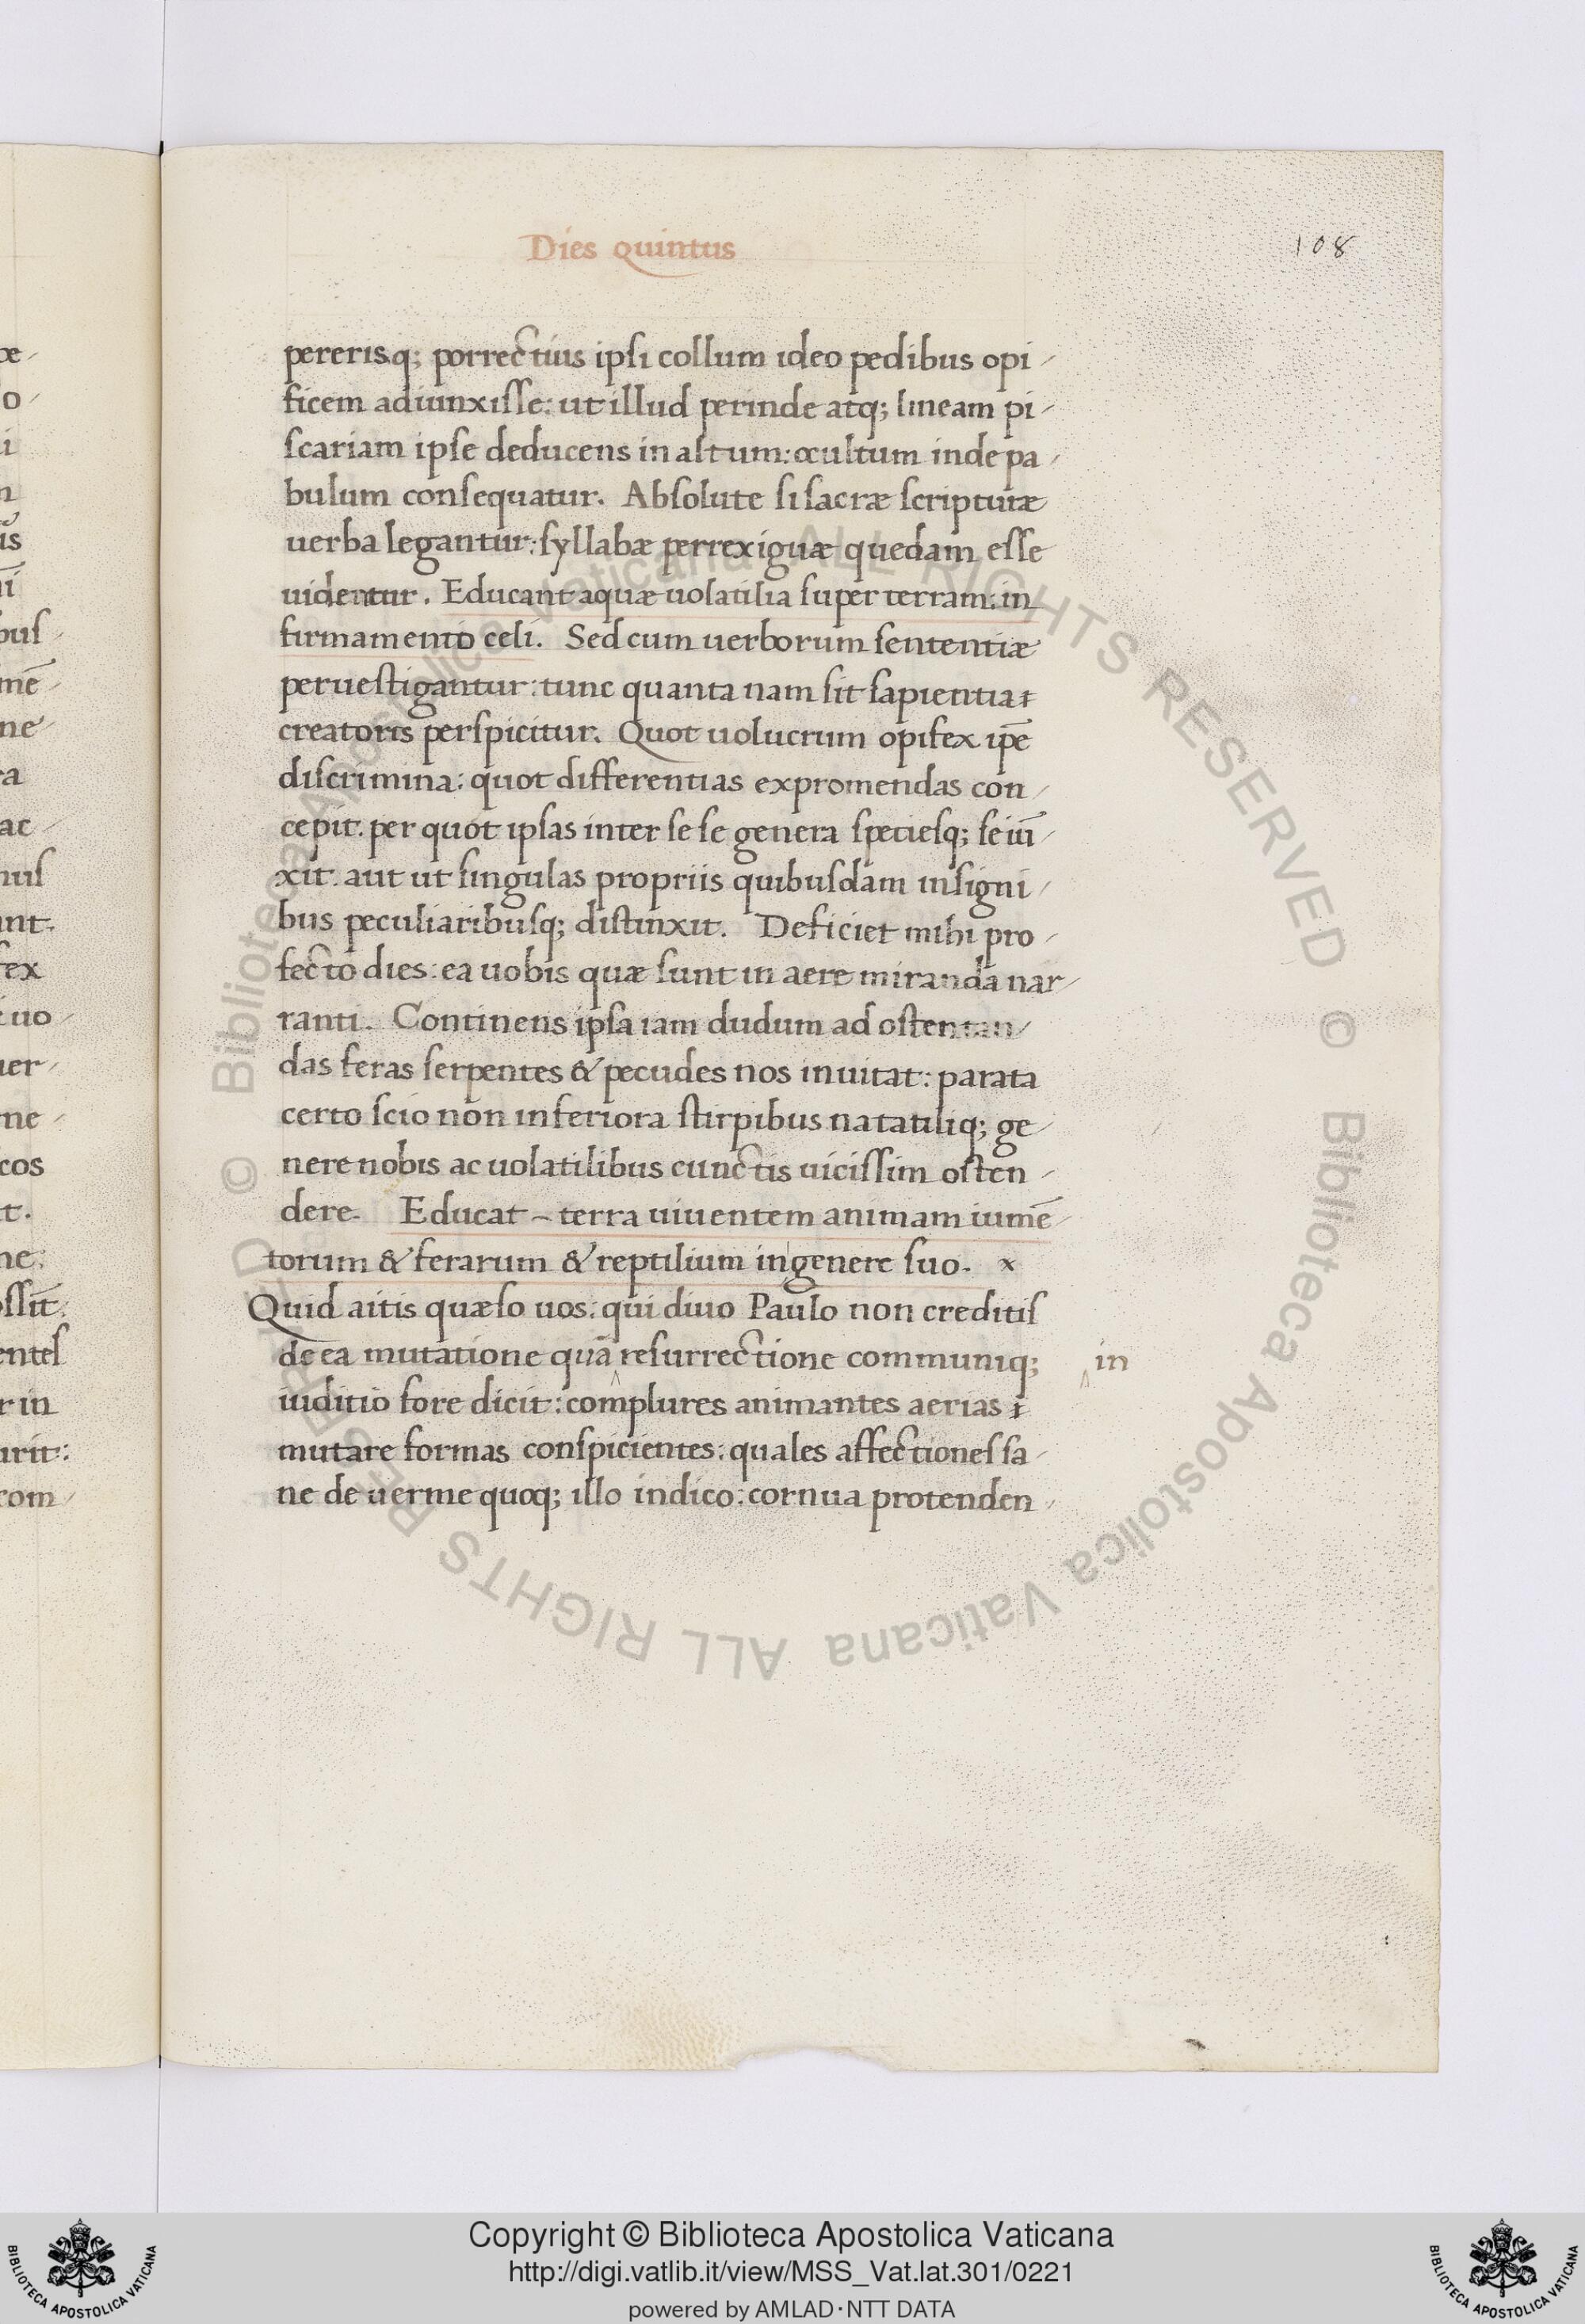 Dies quintus
108
pereris.q; porrectius ipsi collum ideo pedibus opi-
ficem adiunxisse: ut illud perinde atq; lineam pi-
scariam ipse deducens in altum: occultum inde pa-
bulum consequatur. Absolute si sacræ scripturæ
uerba legantur: syllabæ perrexiguæ quedam esse
uidentur. Educant aquæ uolatilia super terram: in
firmamento celi. Sed cum uerborum sententiæ
peruestigantur: tunc quanta nam sit sapientia
creatoris perspicitur. Quot uolucrum opifex ip̄e
discrimina: quot differentias expromendas con-
cepit: per quot ipsas inter se se genera speciesq; seiū-
xit: aut ut singulas propriis quibusdam insigni-
bus peculiaribusq; distinxit. Deficiet mihi pro-
fecto dies: ea uobis quæ sunt in aere miranda nar-
ranti. Continens ipsa iam dudum ad ostentan-
das feras serpentes & pecudes nos inuitat: parata
certo scio non inferiora stirpibus natatiliq; ge-
nere nobis ac uolatilibus cunctis uicissim osten-
dere. Educat - terra uiuentem animam iumē-
torum & ferarum & reptilium in genere suo. x
Quid aitis quæso uos: qui diuo Paulo non creditis
de ea mutatione quā resurrectione communiq; in
iuditio fore dicit: complures animantes aerias
mutare formas conspicientes: quales affectiones sa-
ne de uerme quoq; illo indico: cornua protenden-
Copyright © Biblioteca Apostolica Vaticana
http://digi.vatlib.it/view/MSS_Vat.lat.301/0221
powered by AMLAD·NTT DATA